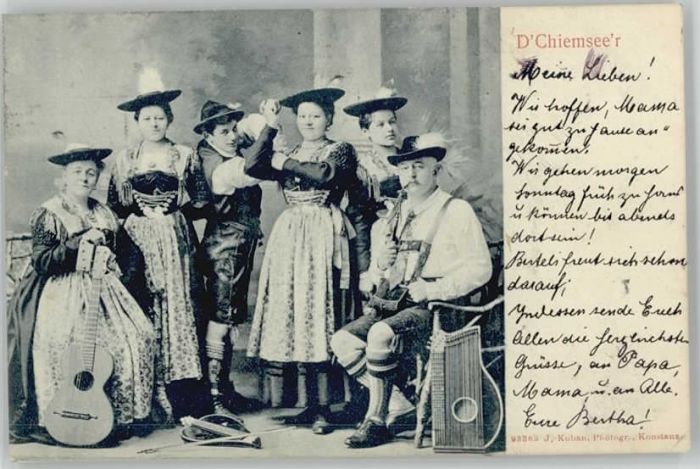 D'Chiemsee'r
Meine Lieben!
Wir hoffen, Mama
sei gut zu Hause an-
gekommen!
Wir gehen morgen
Sonntag früh zu Horns
u können bis abends
dort sein!
Berteli freut sich schon
darauf,
Indessen sende Euch
Allen die herzlichsten
Grüsse, an Papa,
Mama, u. an Alle.
Eure Bertha!
98363 J. Kuban, Photogr., Konstanz